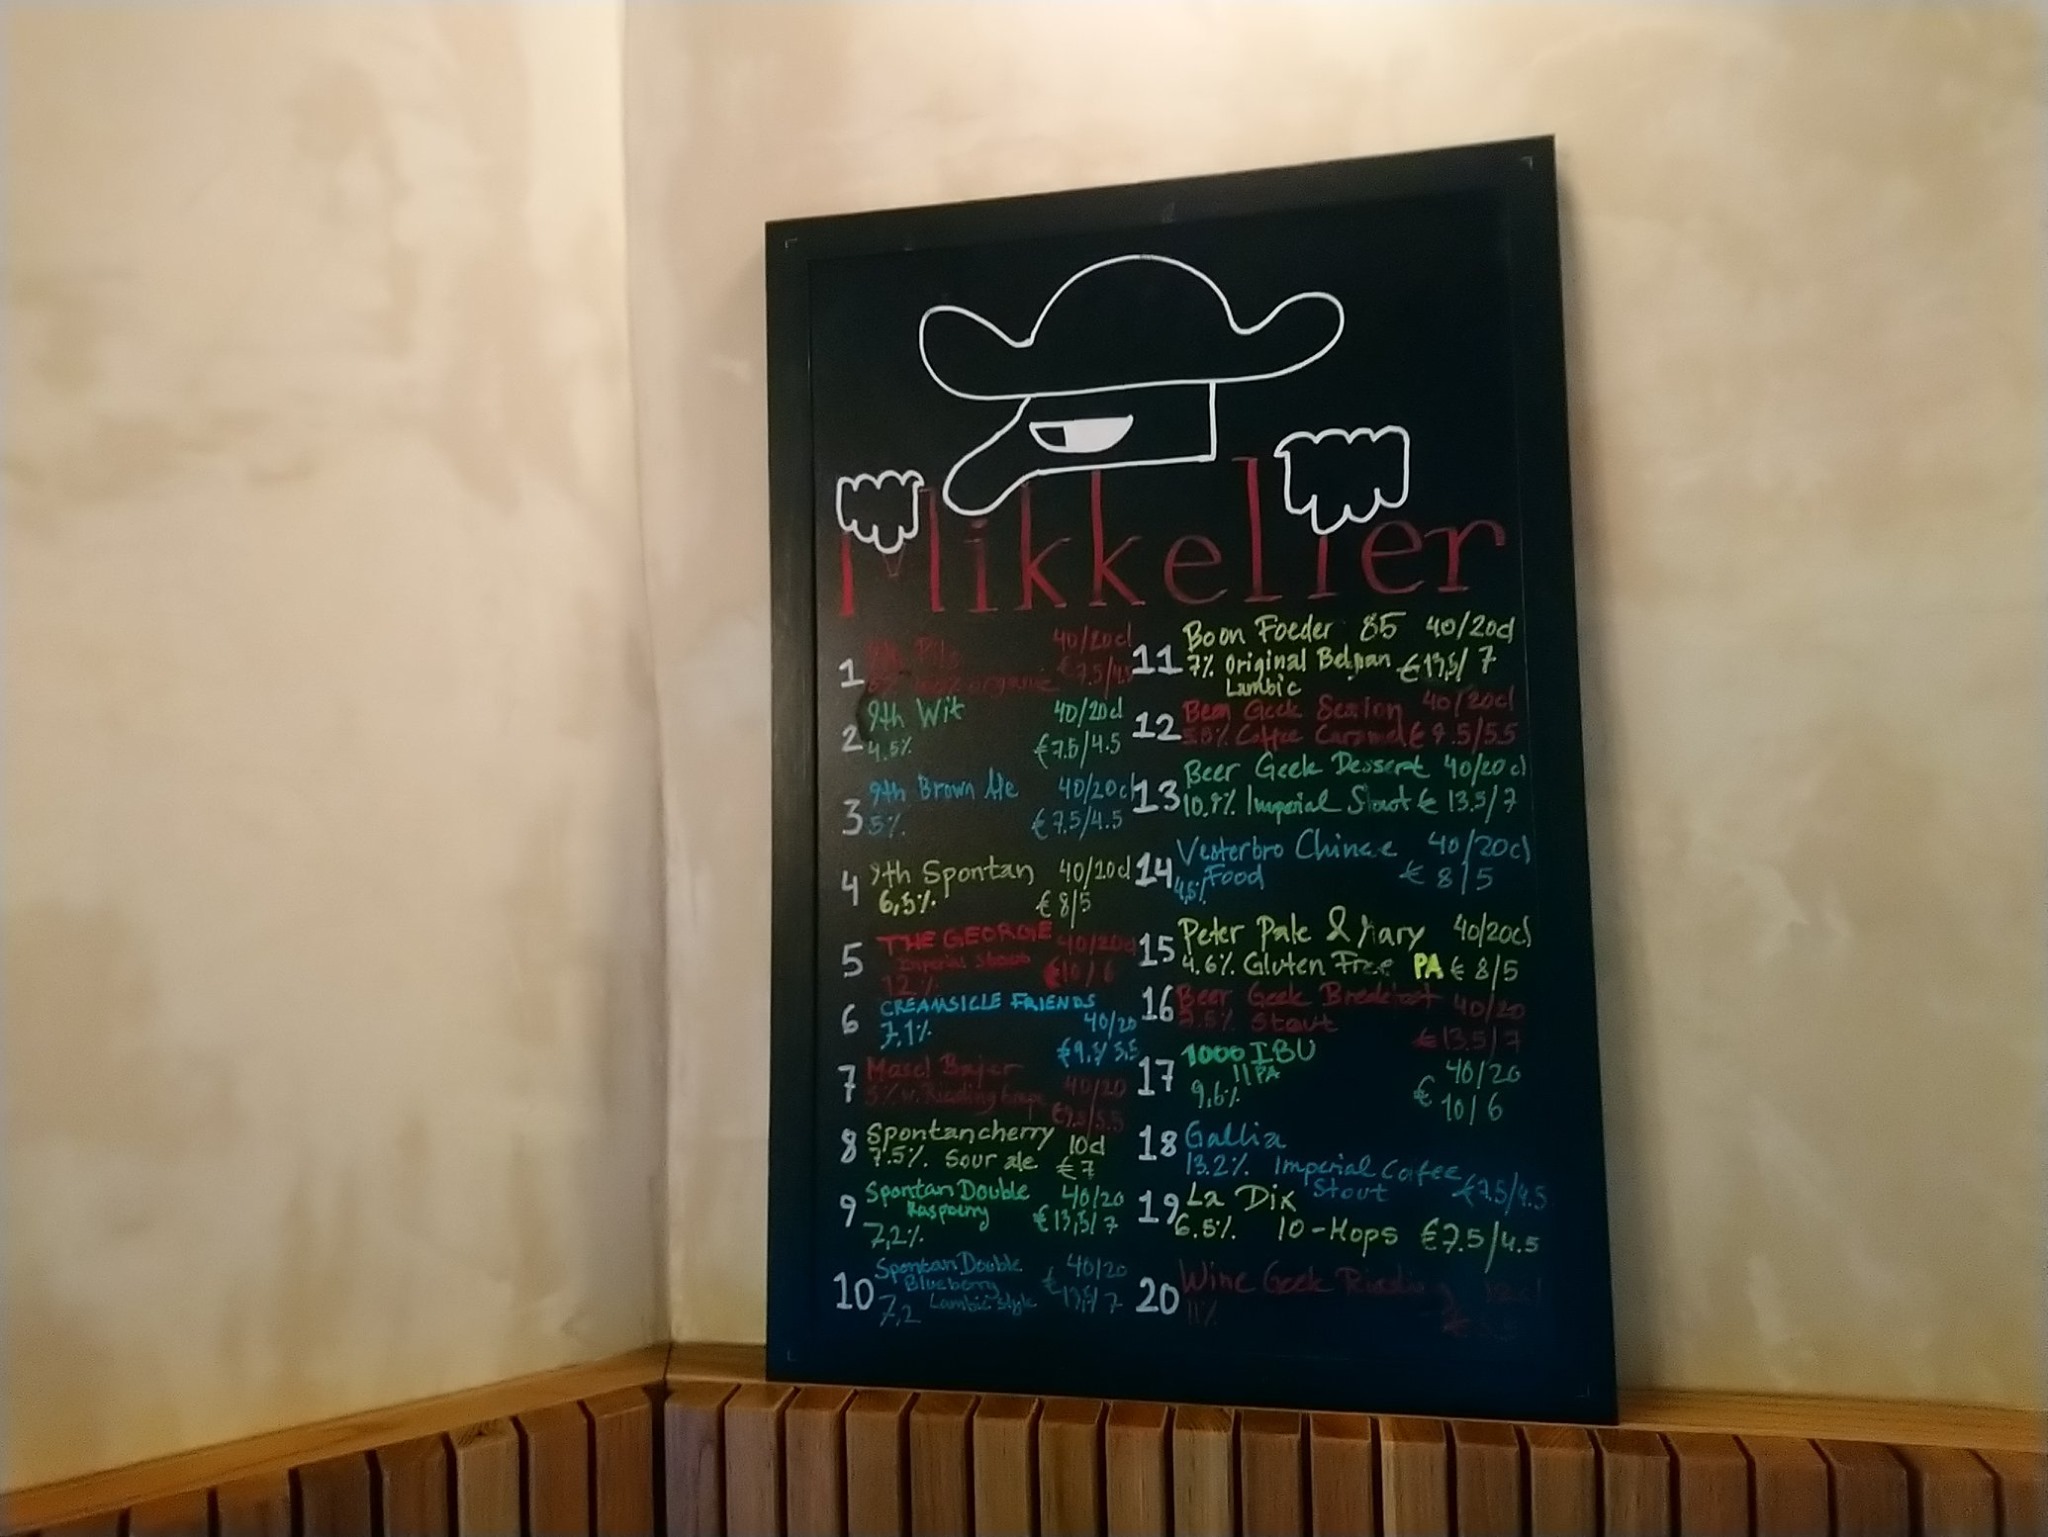 Mikkeller
1 9th Pils 40/20cl
100% organic €7.5/4.5
2 9th Wit 40/20cl
4.5% €7.5/4.5
3 9th Brown Ale 40/20cl
5% €7.5/4.5
4 9th Spontan 40/20cl
6,5% €8/5
5 THE GEORGIE 40/20cl
Imperial Stout €10/6
12%
6 CREAMSICLE FRIENDS
7,1% 40/20
€9,5/5,5
7 40/20
5% €9.5/5.5
8 Spontancherry 10cl
7.5% Sour ale €7
9 Spontan Double 40/20
Raspberry €13,5/7
7,2%
10 Spontan Double 40/20
Blueberry €13,5/7
7,2 Lambic style
11 Boon Foeder 85 40/20cl
7% Original Belgian €13,5/7
Lambic
12 Beer Geek Session 40/20cl
Coffee Caramel €9.5/5.5
13 Beer Geek Dessert 40/20cl
Imperial Stout € 13.5/7
14 Vesterbro Chinese 40/20cl
4,5% Food € 8/5
15 Peter Pale & Mary 40/20cl
4.6% Gluten Free PA € 8/5
16 Beer Geek Breakfast 40/20
7.5% Stout €13.5/7
17 1000 IBU 40/20
IIPA
9,6% € 10/6
18 Gallia
13.2% Imperial Coffee €7.5/4.5
Stout
19 La Dix
6.5% 10-Hops €7.5/4.5
20 Wine Geek Riesling
11%